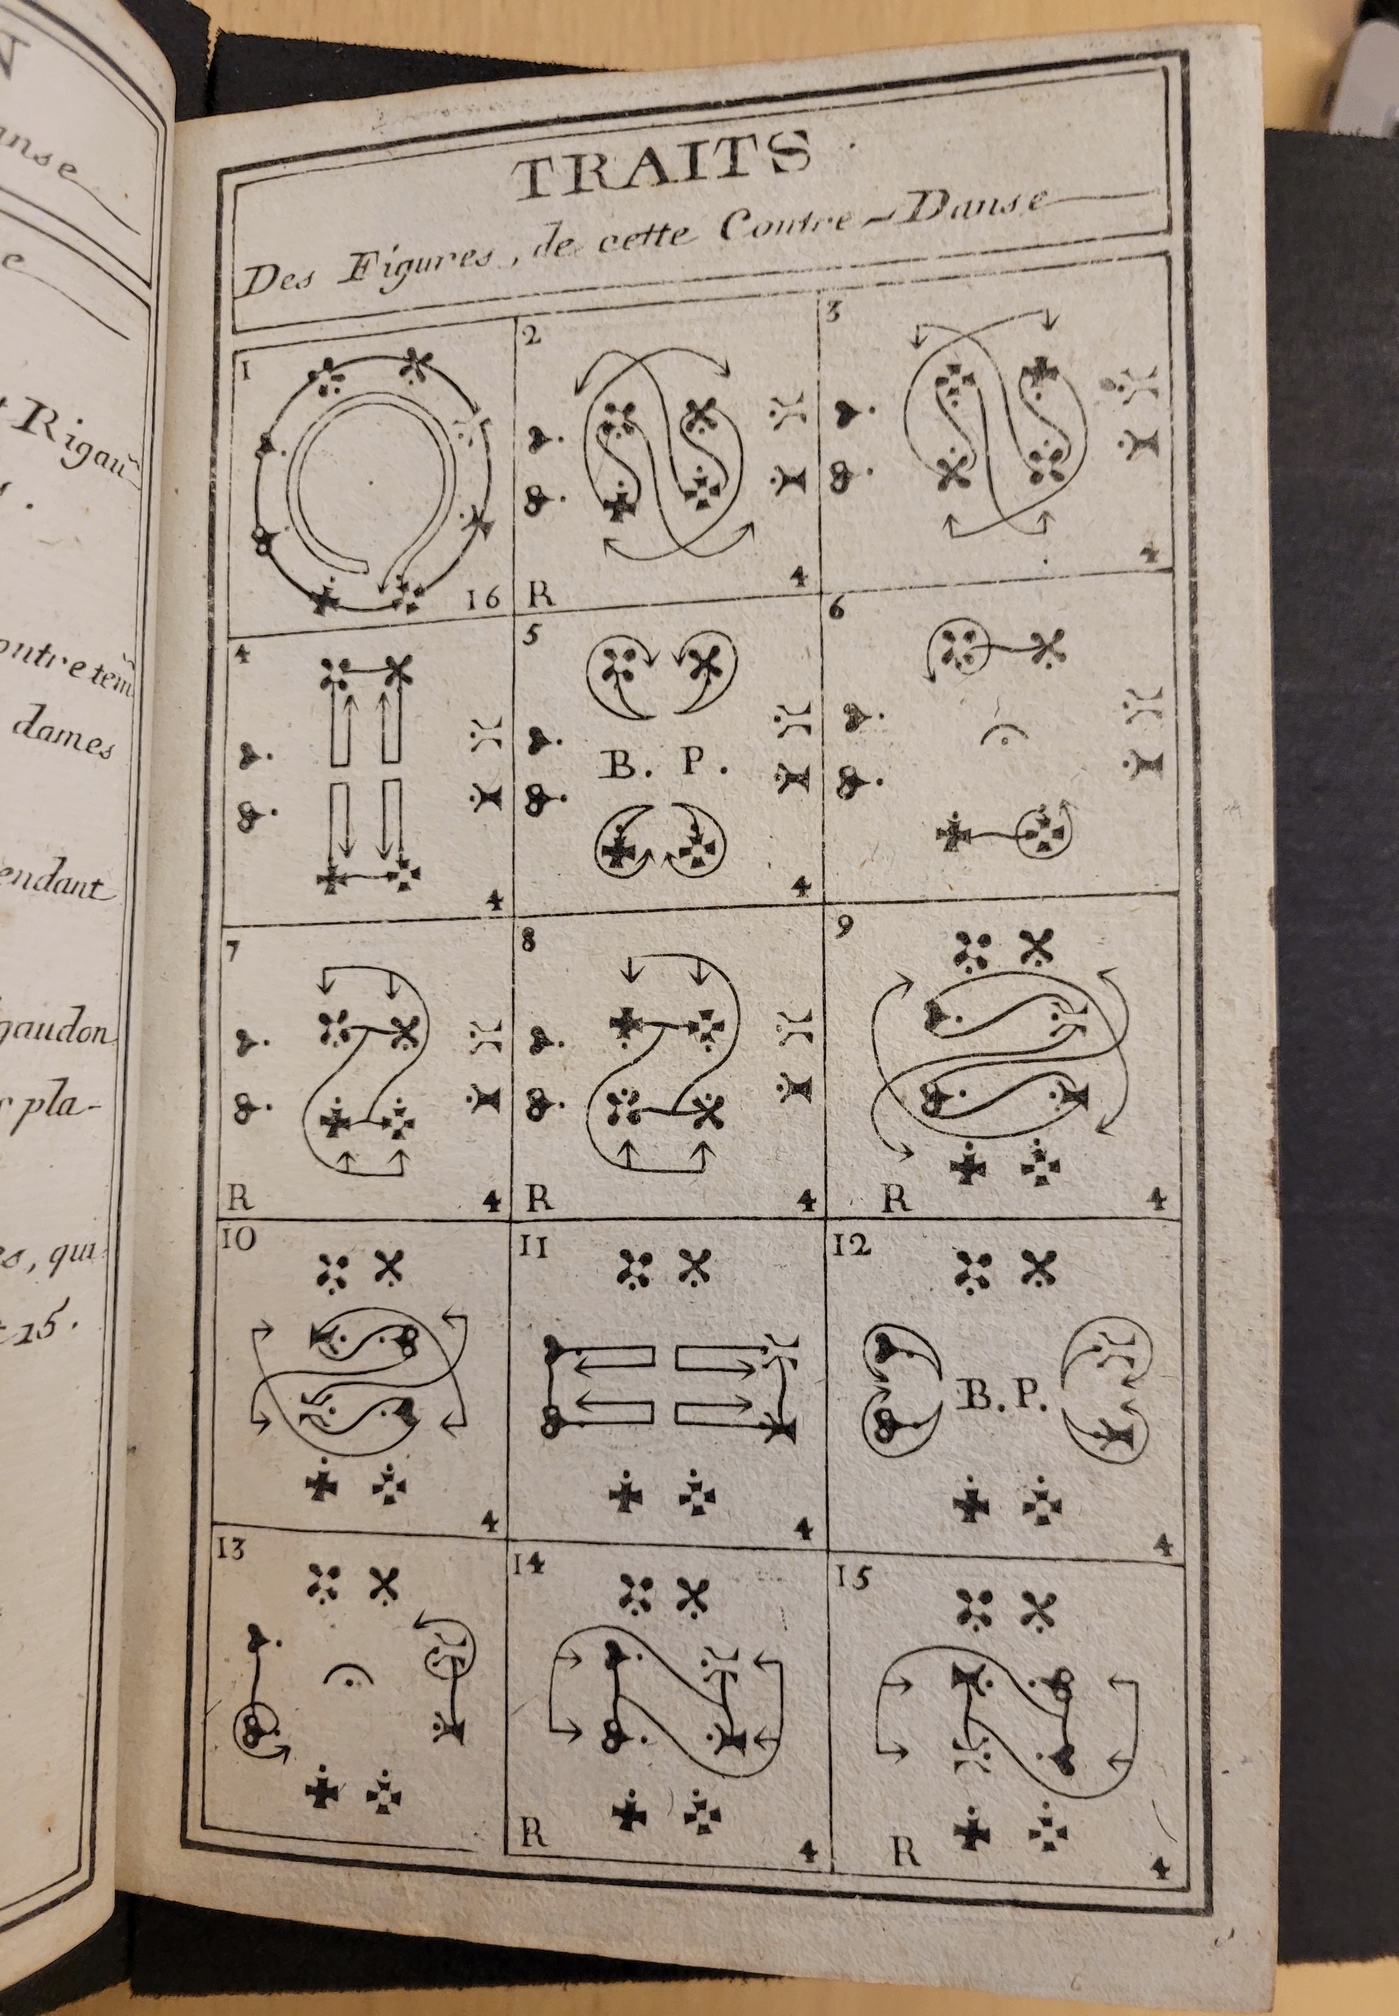 anse
e
Rigau
s.
ontre tem
dames
endant
gaudon
pla-
s, qui
15.
TRAITS
Des Figures, de cette Contre-Danse
1
16
2
R
4
3
4
4
4
5
B. P.
4
6
7
R
4
8
R
4
9
R
4
10
4
11
4
12
B. P.
4
13
14
R
4
15
R
4